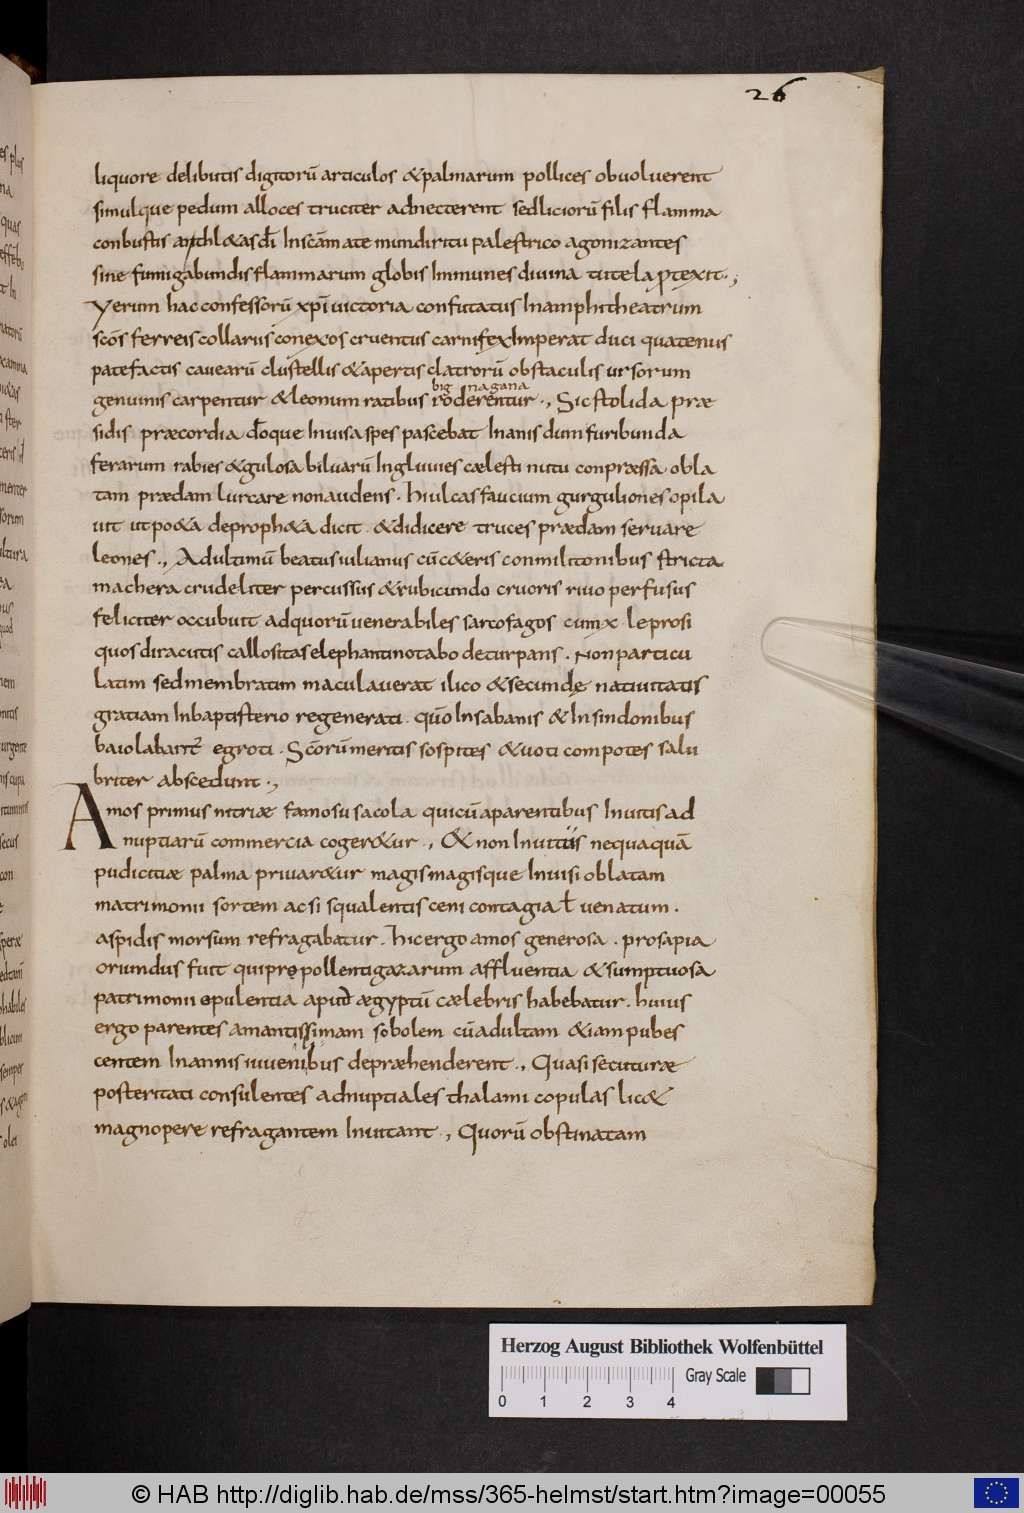 26
liquore delibutis digitorū articulos &palmarum pollices obvolverent
simulque pedum alloces truciter adnecterent sedliciorū filis flamma
conbustis &asdī Inscāmate mundiritu palestrico agonizantes
sine fumigabundis flammarum globis Inmunes divina tutela ptexit.,
Verum hac confessorū xp̄i victoria confutatus Inamphitheatrum
scōs ferreis collariis conexos cruentus carnifex Imperat duci quatenus
patefactis cavearū clustellis &apertis clatrorū obstaculis ursorum
big nagana
genuinis carpentur &leonum ratibus roderentur., Sic stolida præ
sidis præcordia d̄oque Invisa spes pascebat Inanis dum furibunda
ferarum rabies &gulosa biluarū Ingluvies cælesti nutu conpræssa obla
tam prædam lurcare non audens. hiulcas faucium gurguliones opila
vit utpo&a deproph&a dicit &didicere truces prædam servare
leones., Adultimū beatus iulianus cū c&eris conmilitonibus stricta
machera crudeliter percussus &rubicundo cruoris rivo perfusus
feliciter occubuit adquorū venerabiles sarcofagos cum x leprosi
quos diracutis callositas elephantino tabo deturpans. Non particu
latim sed membratim maculaverat ilico &secundę nativitatis
gratiam Inbaptisterio regenerati. quō Insabanis &Insindonibus
baiolabant̄ egroti. Scōrū meritis sospites &voti compotes salu
briter abscedunt.,
Amos primus nitriæ famosus acola qui cū aparentibus Invitis ad
nuptiarū commercia coger&ur., & non Invitus nequaquā
pudicitiæ palma privar&ur magis magisque Invisi oblatam
matrimonii sortem acsi squalentis ceni contagia ł venatum.
aspidis morsum refragabatur. hic ergo amos generosa. prosapia
oriundus fuit qui pro pollenti gazarum affluentia &sumptuosa
patrimonii opulentia apud ægyptū cælebris habebatur. huius
ergo parentes amantissimam sobolem cū adultam &iam pubes
centem Inannis iuvenibus depræhenderent., Quasi secuturæ
posteritati consulentes adnuptiales thalami copulas lic&
magnopere refragantem Invitant., Quorū obstinatam
Herzog August Bibliothek Wolfenbüttel
Gray Scale
0 1 2 3 4
© HAB http://diglib.hab.de/mss/365-helmst/start.htm?image=00055